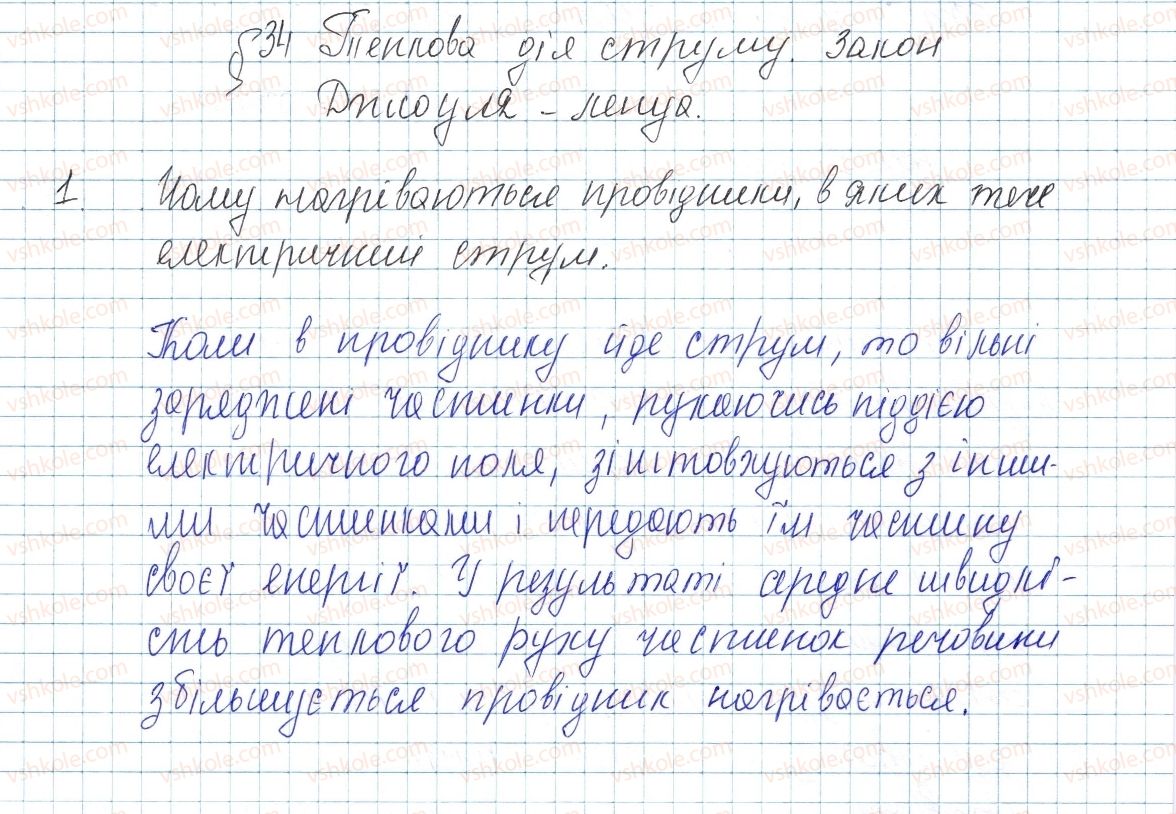 § 34 Теплова дія струму. Закон
Джоуля - Ленца.
1. Чому нагріваються провідники, в яких тече
електричний струм.
Коли в провіднику йде струм, то вільні
заряджені частинки, рухаючись піддією
електричного поля, зіштовхуються з інши-
ми частинками і передають їм частину
своєї енергії. У результаті середнє швидкі-
сть теплового руху частинок речовини
збільшується провідник нагрівається.